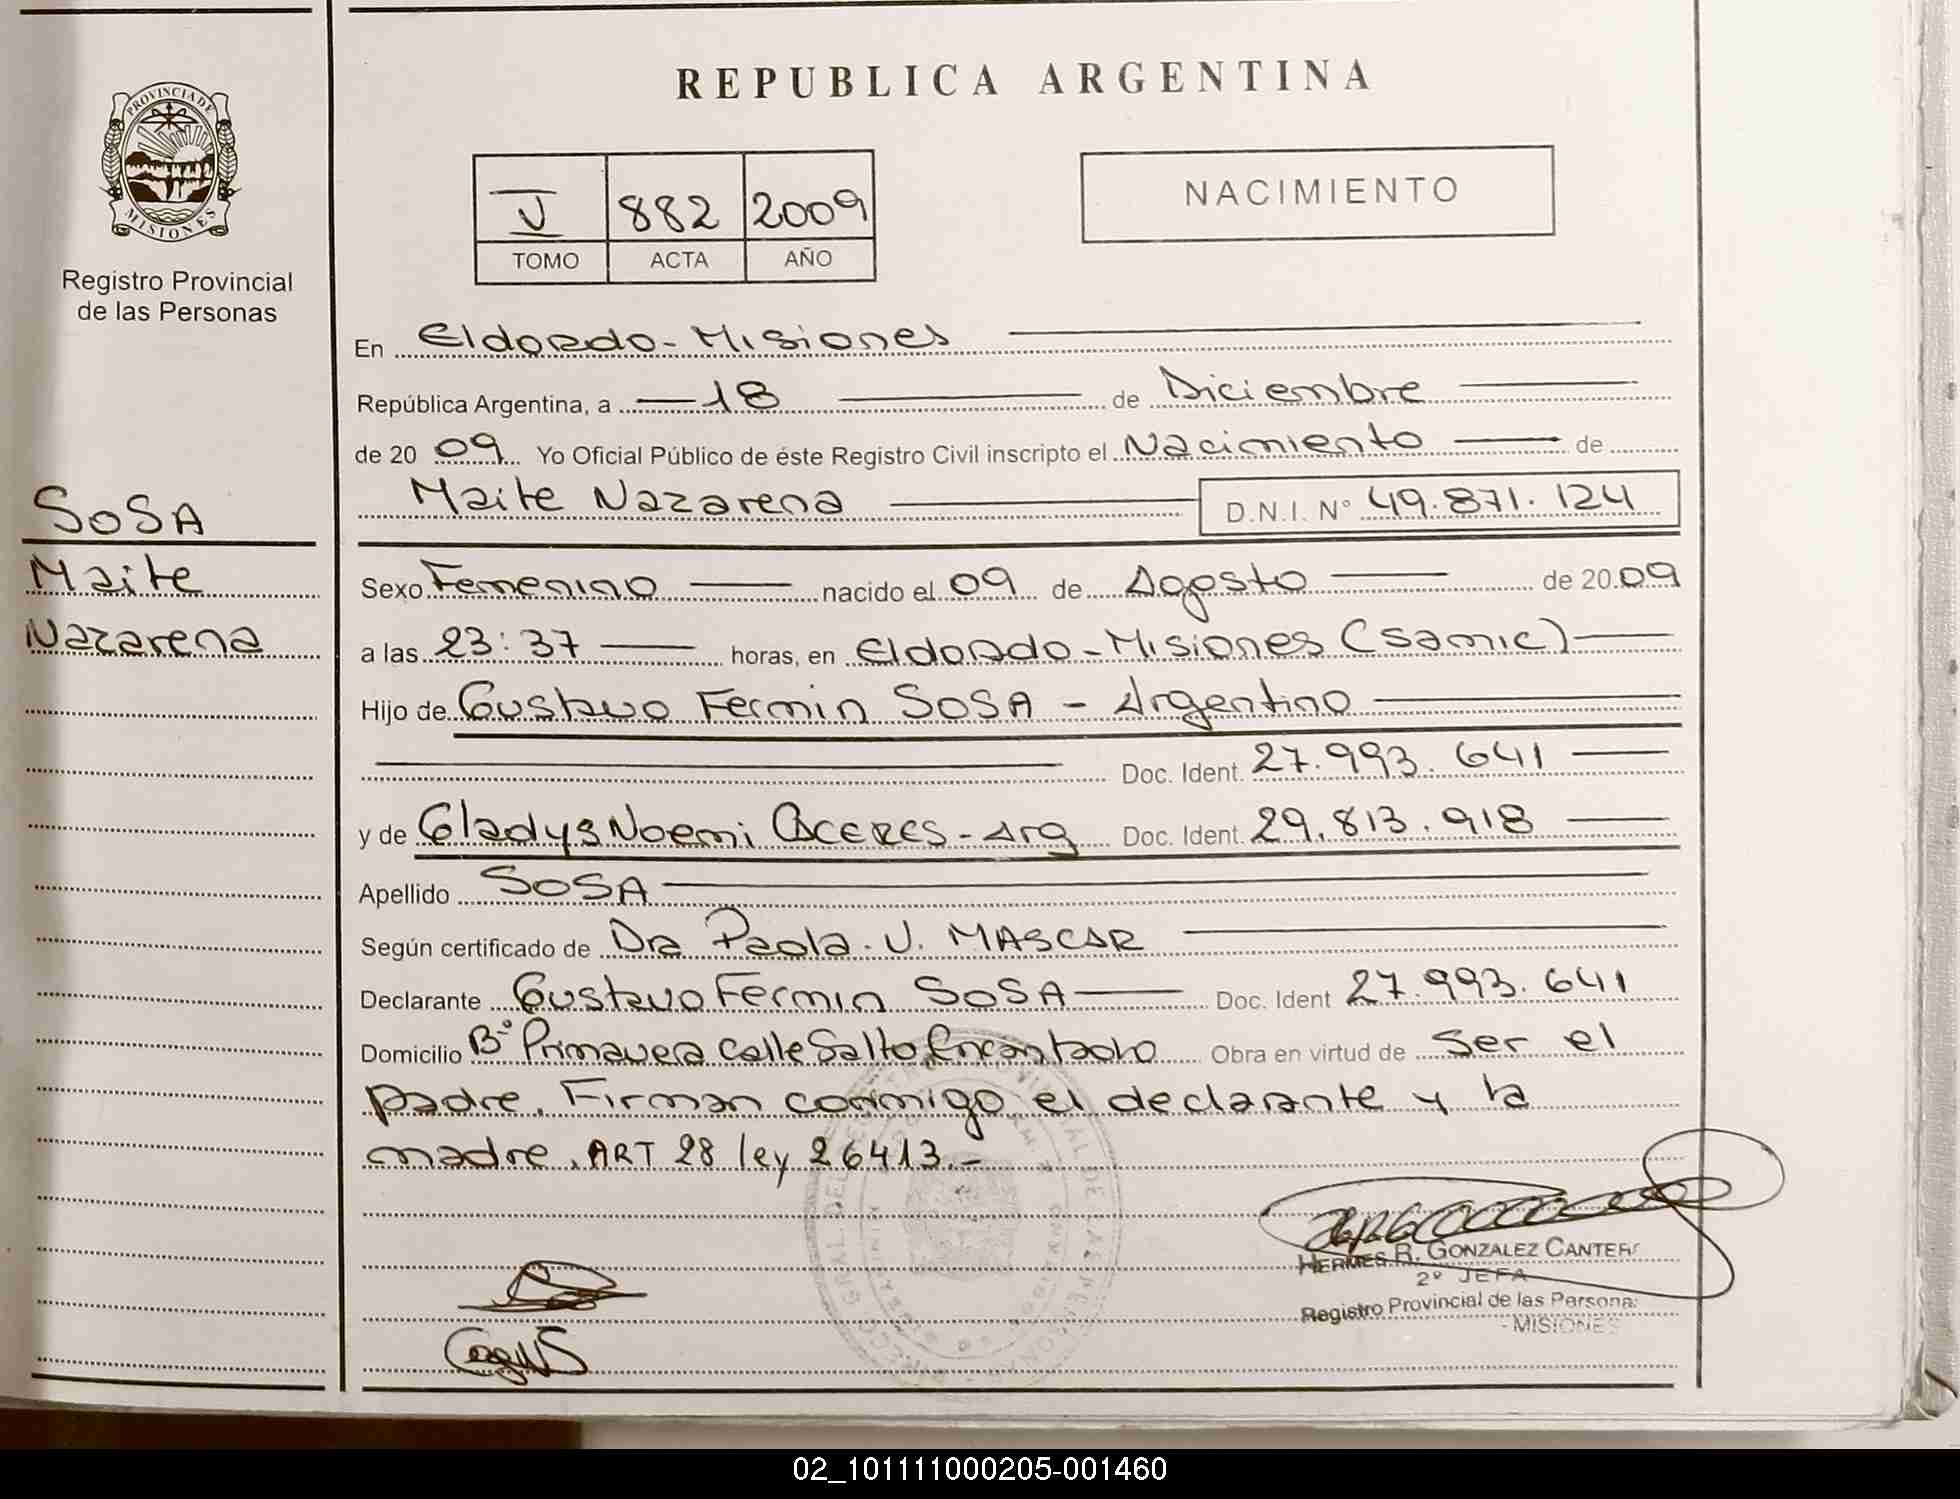 REPUBLICA ARGENTINA
PROVINCIA DE
MISIONES
Registro Provincial
de las Personas
V 882 2009
TOMO ACTA AÑO
NACIMIENTO
SOSA
Maite
Nazarena
En Eldorado - Misiones
República Argentina, a 18 de Diciembre
de 20 09 Yo Oficial Público de éste Registro Civil inscripto el Nacimiento de
Maite Nazarena D.N.I. N° 49.871.124
Sexo Femenino nacido el 09 de Agosto de 20 09
a las 23:37 horas, en Eldorado - Misiones (Samic)
Hijo de Gustavo Fermin SOSA - Argentino
Doc. Ident. 27.993.641
y de Gladys Noemi CACERES - Arg Doc. Ident. 29.813.918
Apellido SOSA
Según certificado de Dra Paola. V. MASCAR
Declarante Gustavo Fermin SOSA Doc. Ident 27.993.641
Domicilio B° Primavera Calle Salto Encantado Obra en virtud de Ser el
padre. Firman conmigo el declarante y la
madre. ART 28 ley 26413.-
HERMES R. GONZALEZ CANTER
2° JEFA
Registro Provincial de las Persona
- MISIONES
02_101111000205-001460